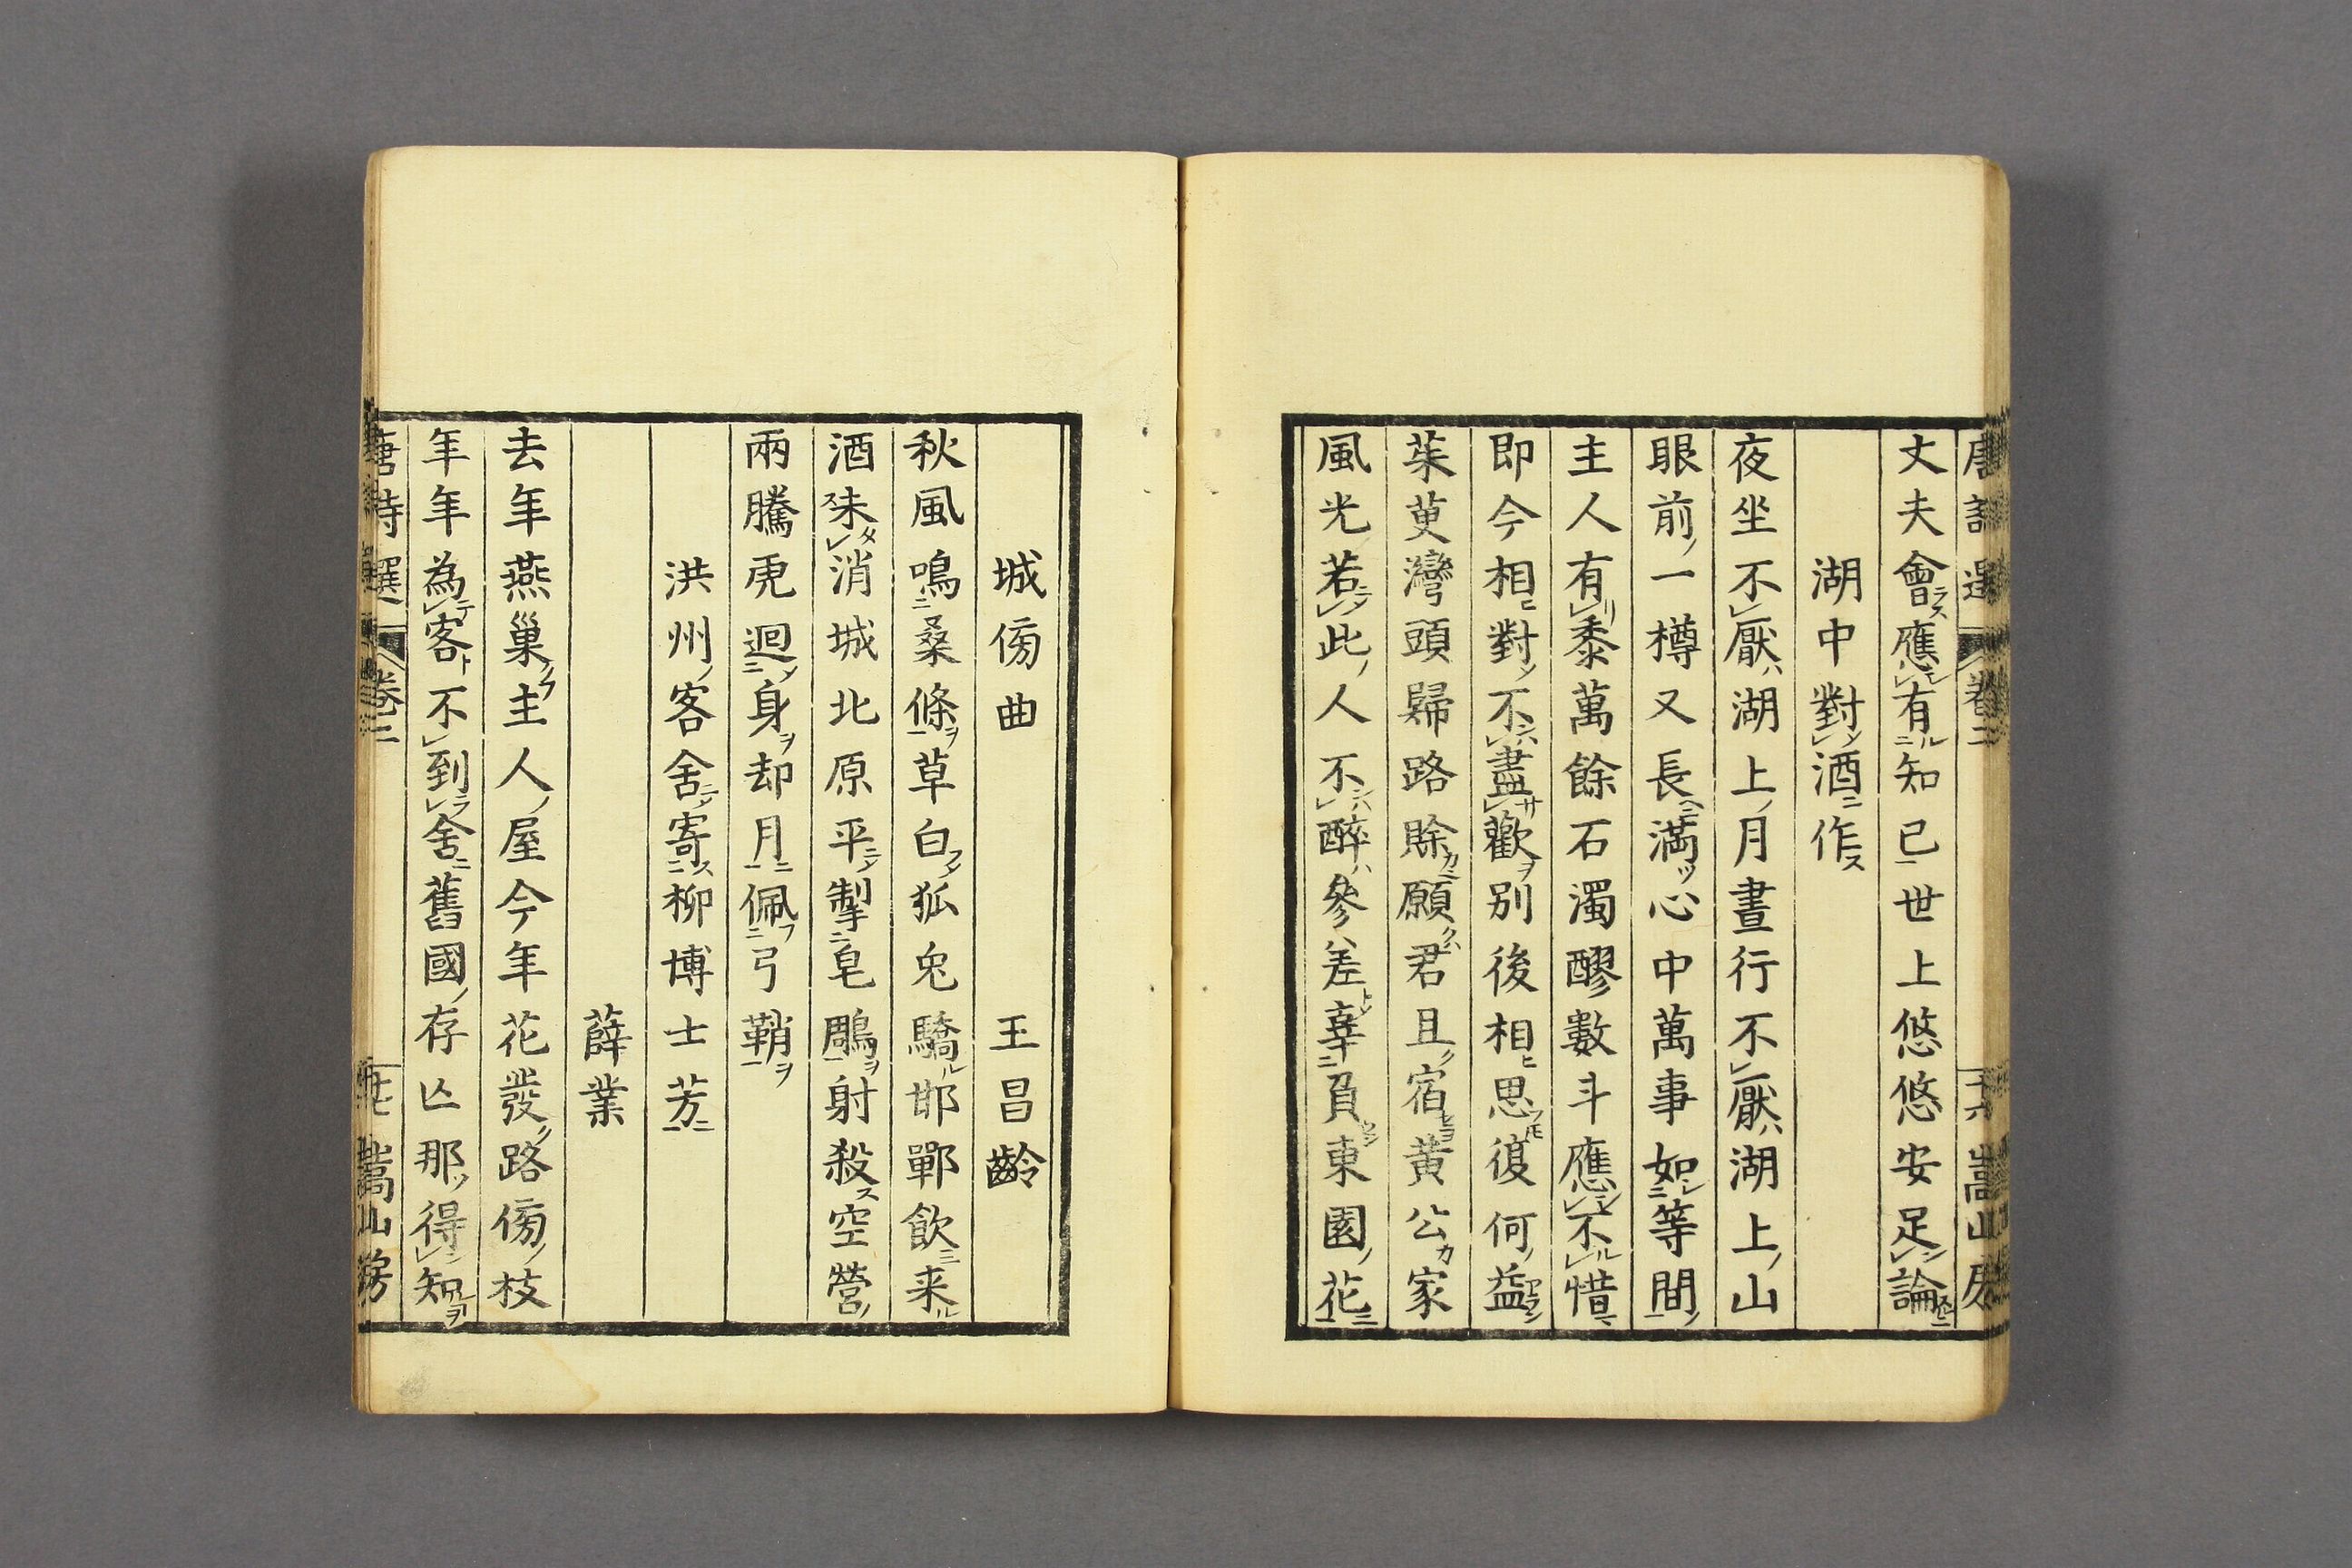 唐詩選 卷二 十六 嵩山房
丈夫會應有知已世上悠悠安足論
湖中對酒作
夜坐不厭湖上月晝行不厭湖上山
眼前一樽又長満心中萬事如等間
主人有黍萬餘石濁醪數斗應不惜
即今相對不盡歡別後相思復何益
茱萸灣頭歸路賒願君且宿黄公家
風光若此人不醉參差辜負東園花
城傍曲 王昌齡
秋風鳴桑條草白狐兔驕邯鄲飲来
酒未消城北原平掣皂鵰射殺空營
兩騰虎迴身却月佩弓鞘
洪州客舍寄柳博士芳
薛業
去年燕巢主人屋今年花發路傍枝
年年為客不到舍舊國存亡那得知
唐詩選 卷二 十七 嵩山房